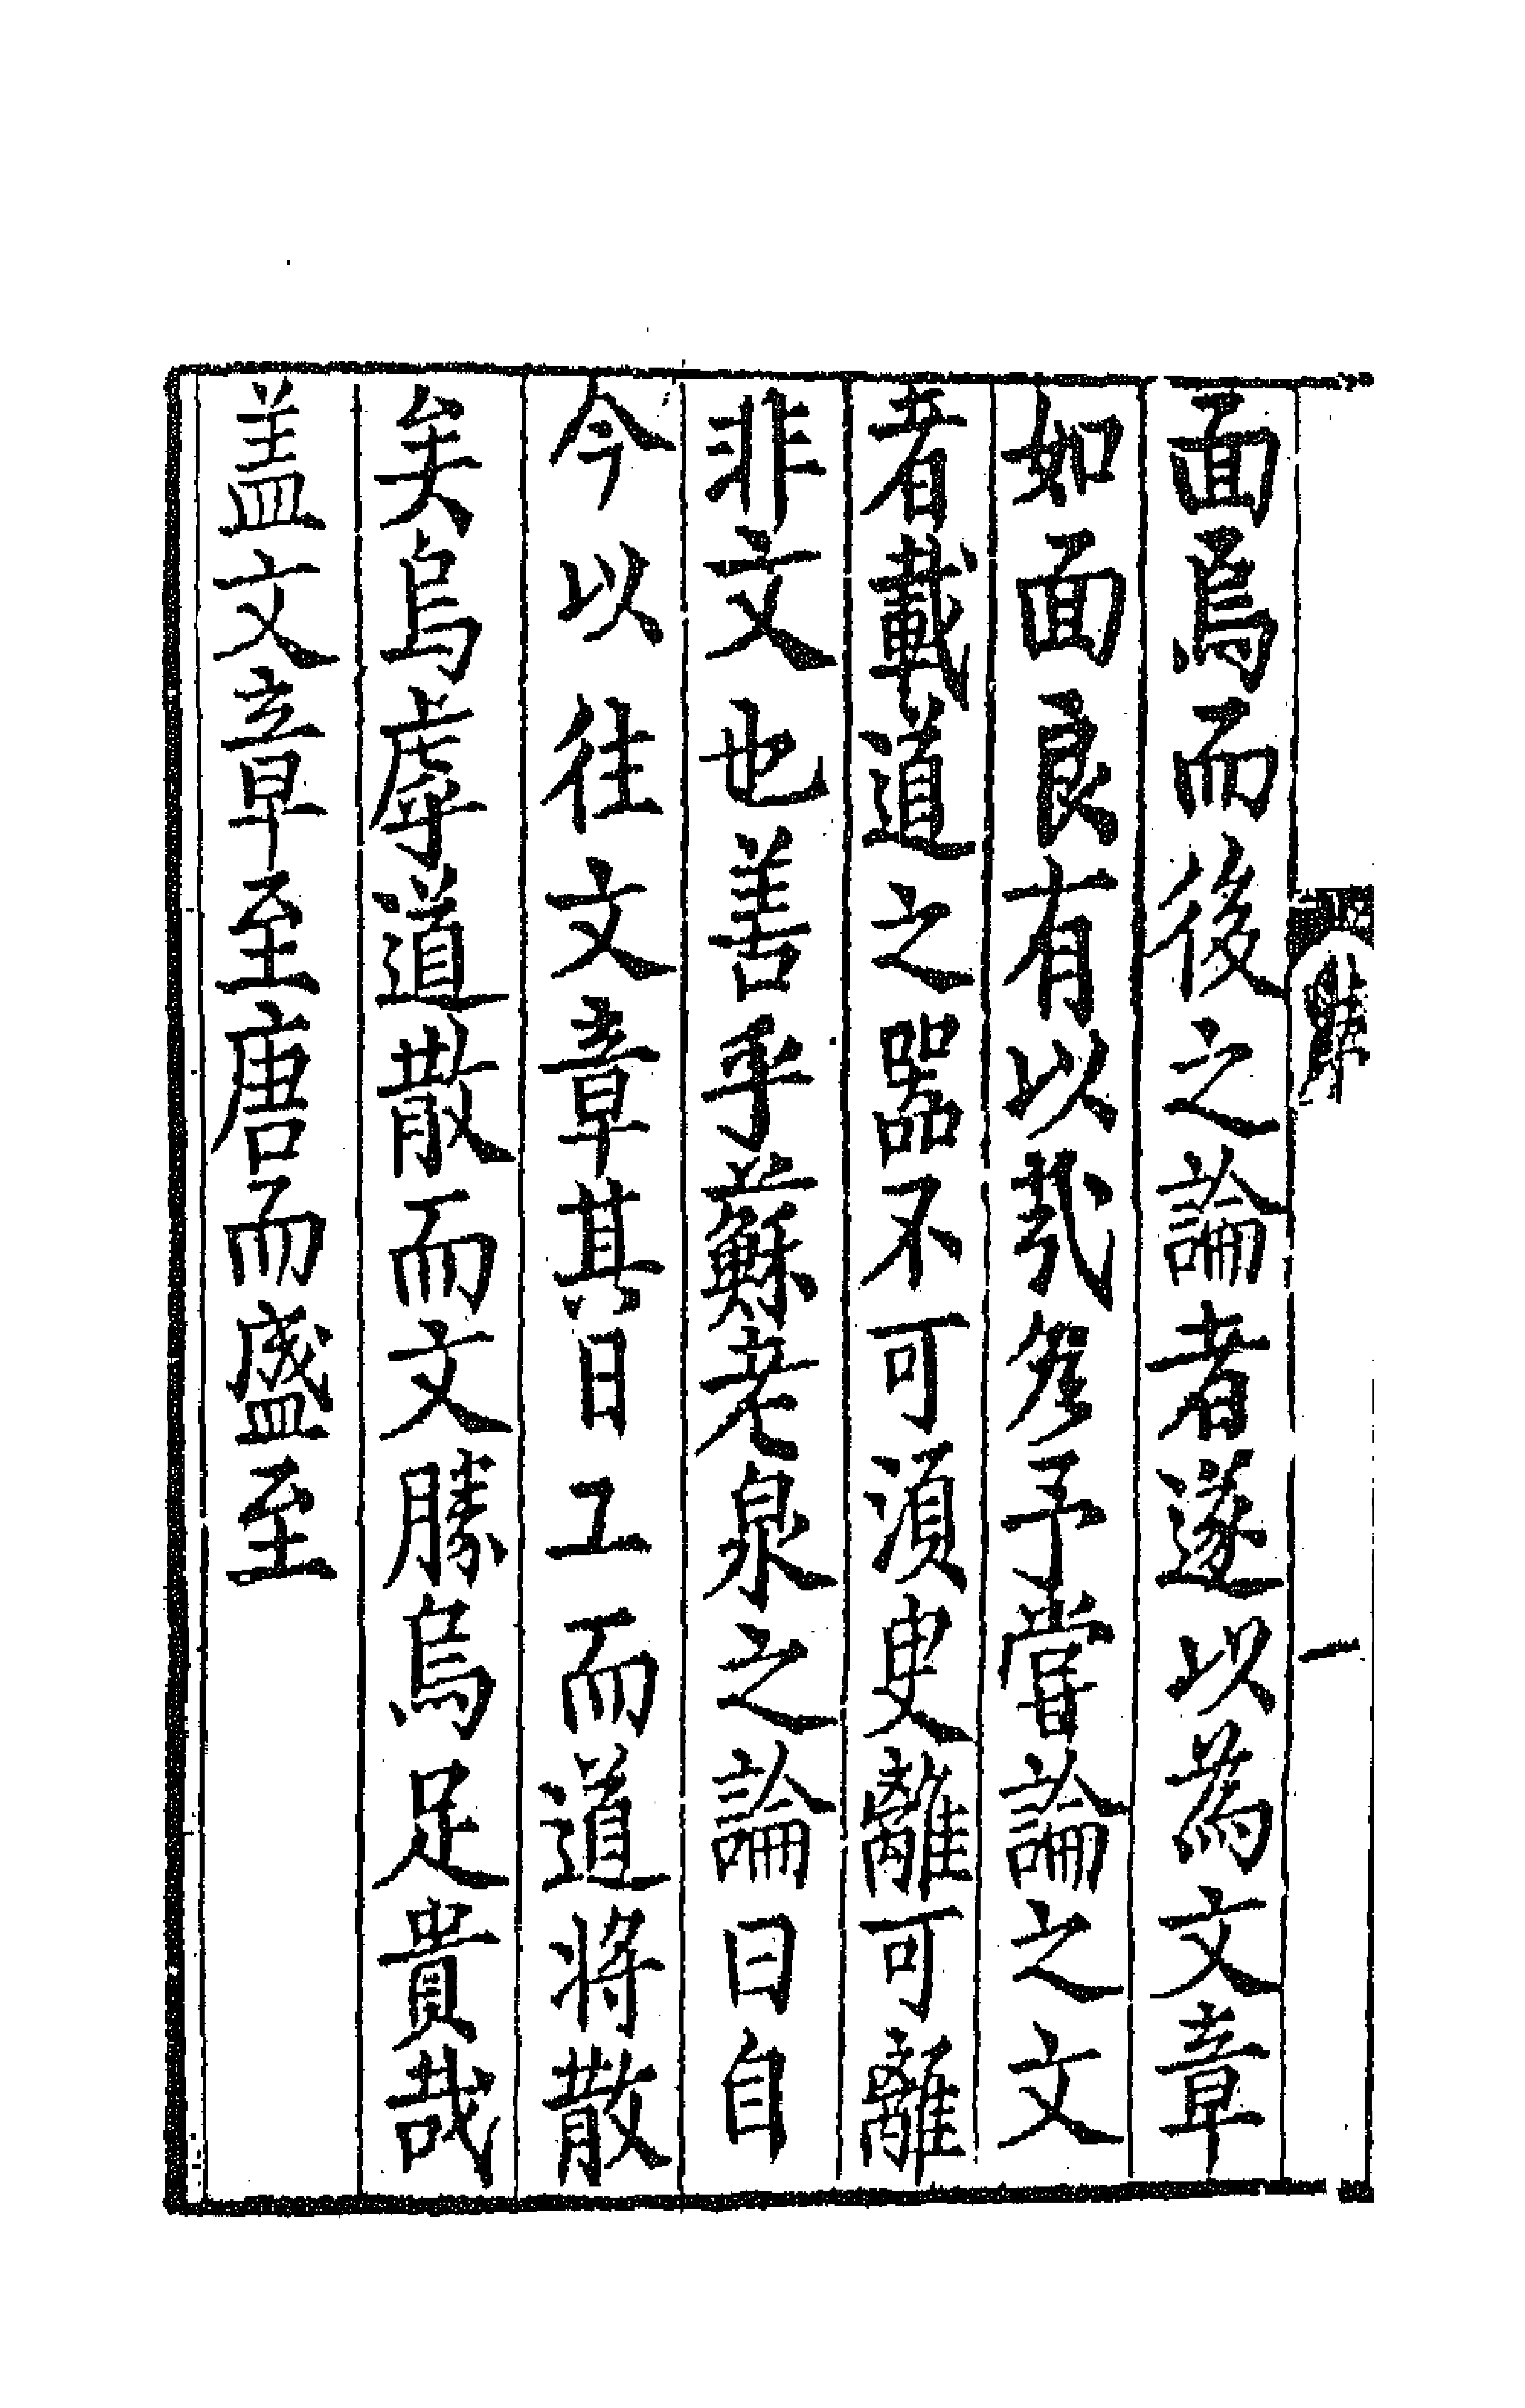 面焉而後之論者遂以為文章
如面良有以哉矣予嘗論之文
者載道之器不可須臾離可離
非文也善乎蘇老泉之論曰自
今以往文章其日工而道將散
矣烏虖道散而文勝烏足貴哉
盖文章至唐而盛至
一